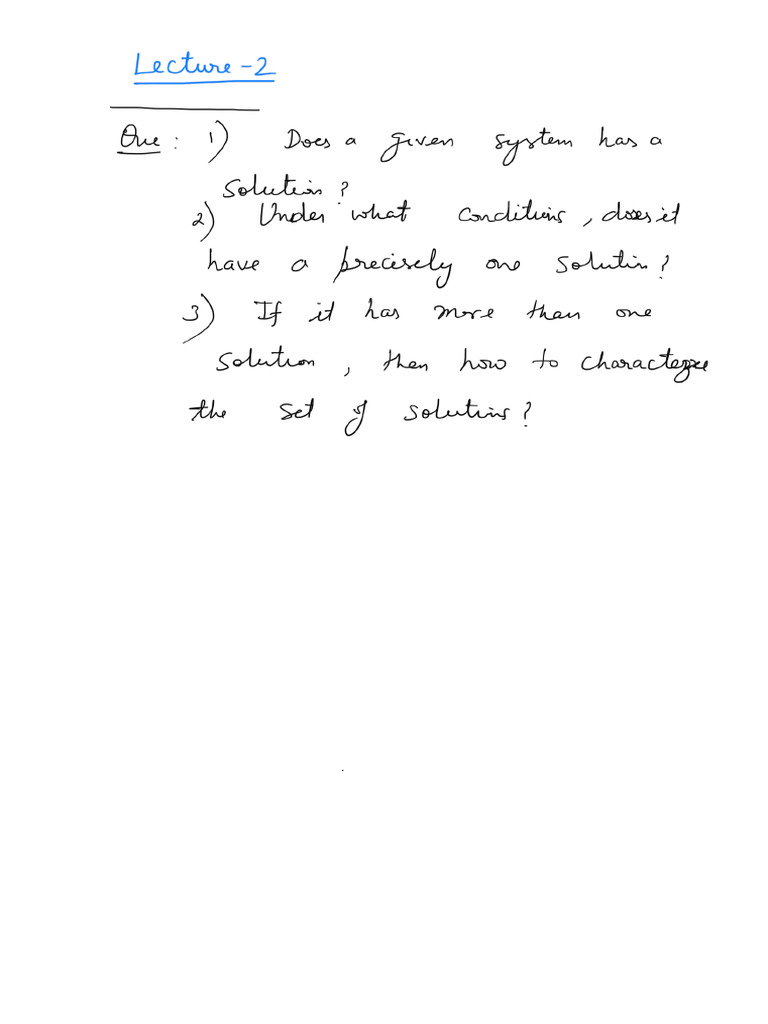 Lecture-2
Que: 1) Does a given system has a
solution?
2) Under what conditions, does it
have a precisely one solution?
3) If it has more than one
solution, then how to characterize
the set of solutions?